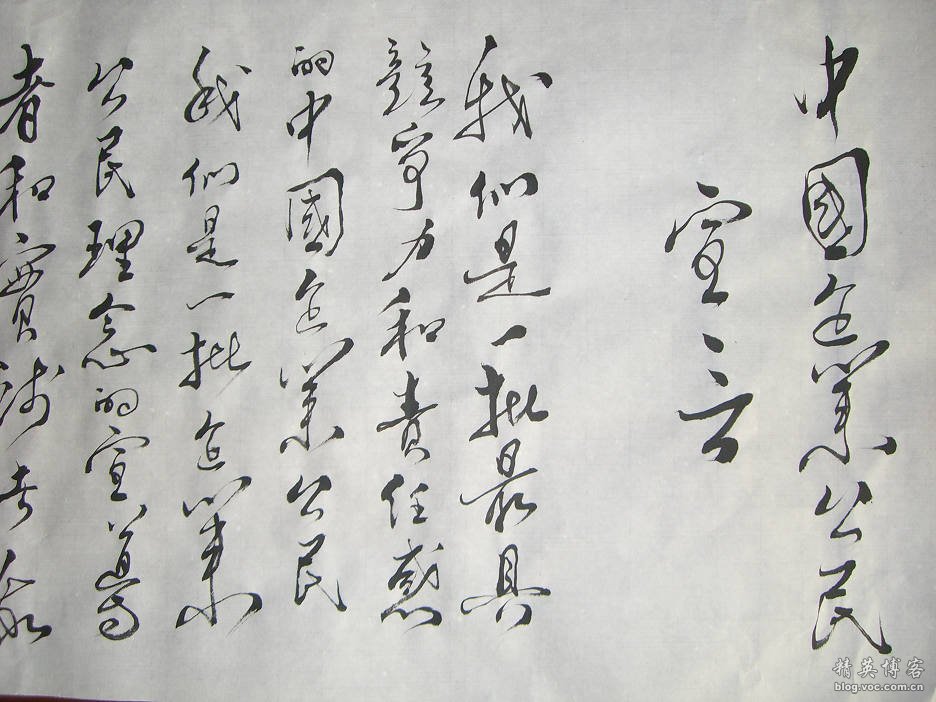 中國企業公民
宣言
我们是一批最具
競争力和責任感
的中國企業公民
我们是一批企業
公民理念的宣導
者和實践者
精英博客
blog.voc.com.cn